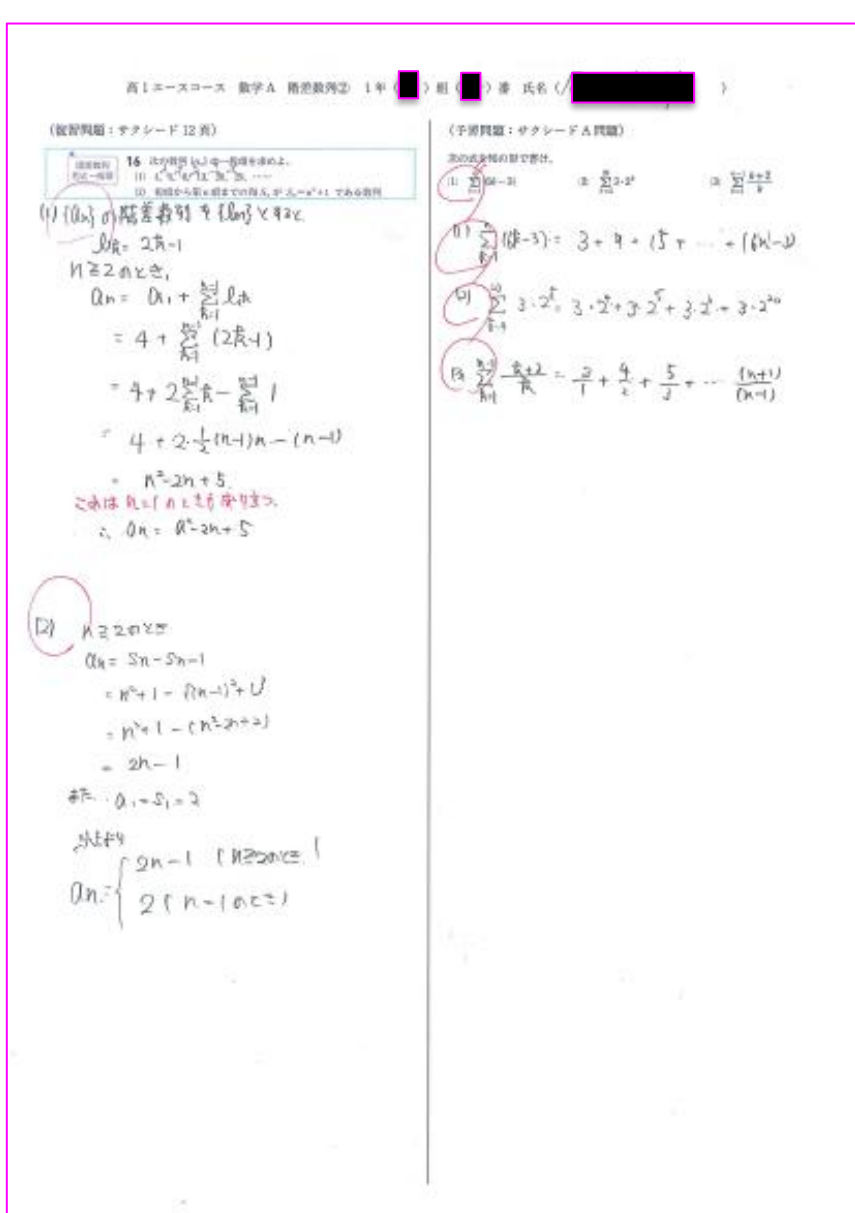 高1エースコース 数学A 階差数列② 1年( )組( )番 氏名( )
(復習問題:サクシード12頁)
16 次の数列{aₙ}の一般項を求めよ。
(2) 初項から第n項までの和Sₙが Sₙ=n²+1 である数列
(1) {an}の階差数列を{bn}とすると
bk = 2k-1
n≧2のとき,
an = a1 + Σ[k=1, n-1] bk
= 4 + Σ[k=1, n-1] (2k-1)
= 4 + 2Σ[k=1, n-1] k - Σ[k=1, n-1] 1
= 4 + 2・1/2(n-1)n - (n-1)
= n²-2n+5.
これは n=1 のときも成り立つ。
∴ an = n²-2n+5
(2) n≧2のとき
an = Sn-Sn-1
= n²+1-{(n-1)²+1}
= n²+1-(n²-2n+2)
= 2n-1
また a1=S1=2
an = { 2n-1 (n≧2のとき)
2 (n=1のとき)
(予習問題:サクシードA問題)
次の式を和の形で書け。
(1) Σ(6k-3) (2) Σ3・2ᵏ (3) Σ (k+2)/k
(1) Σ[k=1, n] (6k-3) = 3 + 9 + 15 + … + (6n-3)
(3) Σ[k=1, n-1] (k+2)/k = 3/1 + 4/2 + 5/3 + … (n+1)/(n-1)